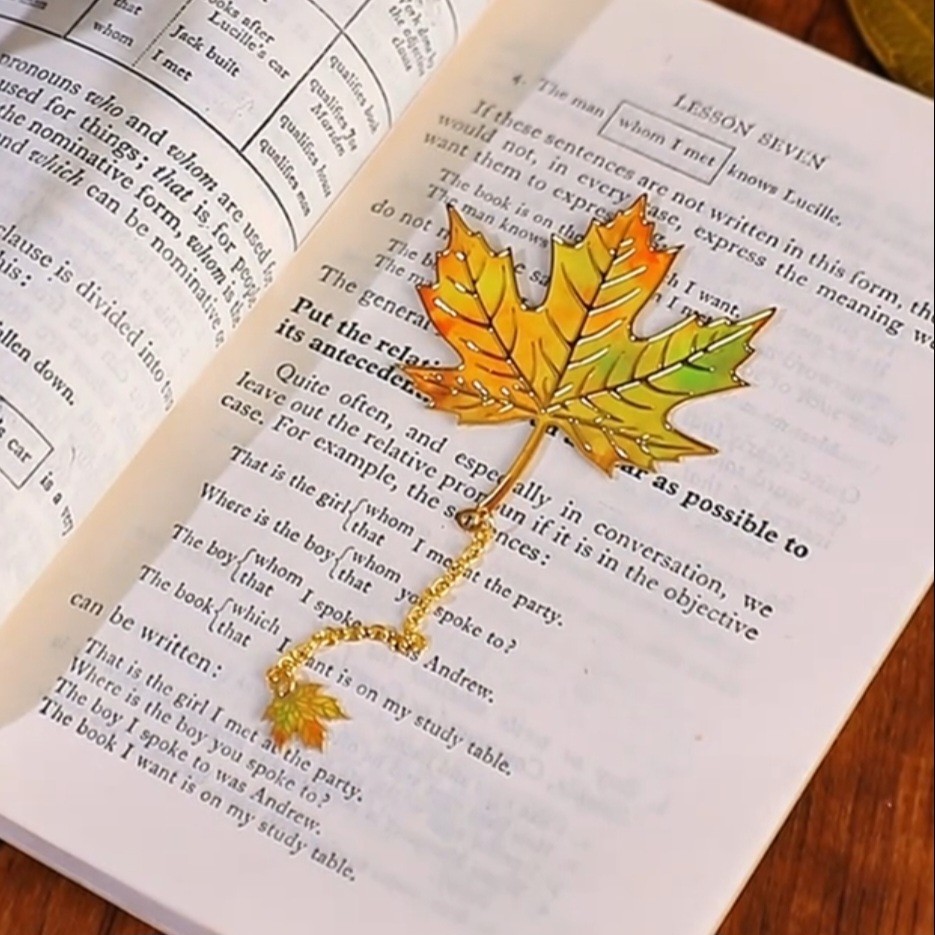 that
whom
ooks after
Lucille's car
Jack built
I met
qualifies book
qualifies Jo
Marion
qualifies house
qualifies man
pronouns who and whom are used
used for things; that is for people
the nominative form, whom is the
nd which can be nominative
clause is divided into
his:
allen down.
s car is a very
LESSON SEVEN
4. The man whom I met knows Lucille.
If these sentences are not written in this form, the
would not, in every case, express the meaning we
want them to express.
The book is on the
The man knows
do not
h I want.
The general
Put the relati
its anteceden as possible to
Quite often, and especially in conversation, we
leave out the relative pronoun if it is in the objective
case. For example, the sentences:
That is the girl {whom that I met at the party.
Where is the boy {whom that you spoke to?
The boy {whom that I spoke Andrew.
The book {which that I want is on my study table.
can be written:
That is the girl I met at the party.
Where is the boy you spoke to?
The boy I spoke to was Andrew.
The book I want is on my study table.